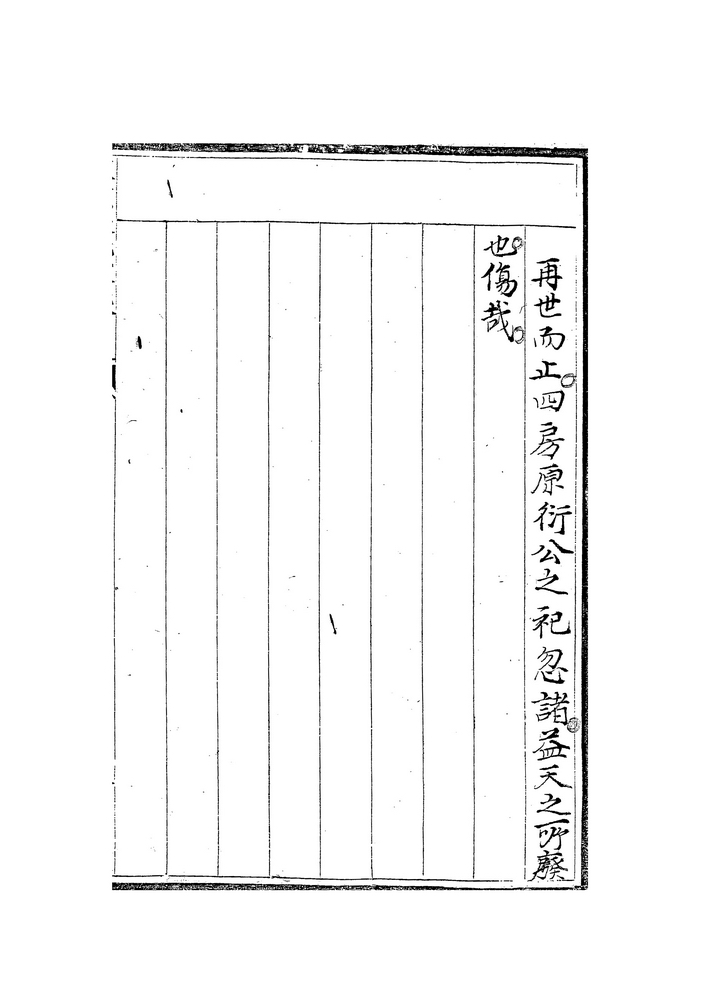 再世而止○四房原衍公之祀忽諸○益天之所廢
也○傷哉○